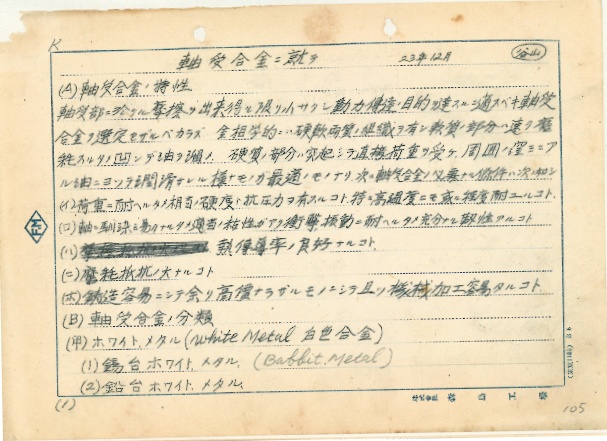 K
軸受合金ニ就テ 23年12月 谷山
(A) 軸受合金ノ特性
軸受部ニ於ケル摩擦ヲ出来得ル限リ小サクシ動力傳達ノ目的ヲ達スルニ適スベキ軸受
合金ヲ選定セザルベカラズ 金相学的ニハ硬軟両質ノ組織ヲ有シ軟質ノ部分ハ速ク磨
耗スルタメ凹ンデ油ヲ溜メ 硬質ノ部分ハ突起シテ直接荷重ヲ受ケ 周囲ノ窪ミニア
ル油ニヨツテ潤滑サレル様ナモノガ最適ノモノナリ 次ニ軸受合金ノ必要ナル條件ハ次ノ如シ
(イ) 荷重ニ耐ヘルタメ相当ノ硬度ト抗圧力ヲ有スルコト 特ニ高温度ニモ或ル程度耐ユルコト
(ロ) 軸ニ馴染ミ易イタメ適当ノ粘性ガアリ衝撃振動ニ耐ヘルタメ充分ナル靱性アルコト
(ハ) 熱傳導率ノ良好ナルコト
(ニ) 磨耗抵抗ノ大ナルコト
(ホ) 鋳造容易ニシテ余リ高價ナラザルモノニシテ且ツ機械加工容易タルコト
(B) 軸受合金ノ分類
(甲) ホワイト.メタル (White Metal 白色合金)
(1) 錫台ホワイト.メタル. (Babbit.Metal)
(2) 鉛台ホワイト.メタル.
(1) 株式会社 工 105